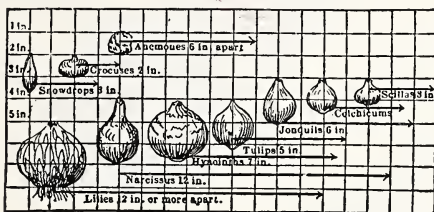 1 in.
2 in.
3 in.
4 in.
5 in.
Anemones 6 in. apart
Crocuses 2 in.
Snowdrops 3 in.
Scillas 3 in
Colchicums
Jonquils 6 in.
Tulips 5 in.
Hyacinths 7 in.
Narcissus 12 in.
Lilies 12 in. or more apart.